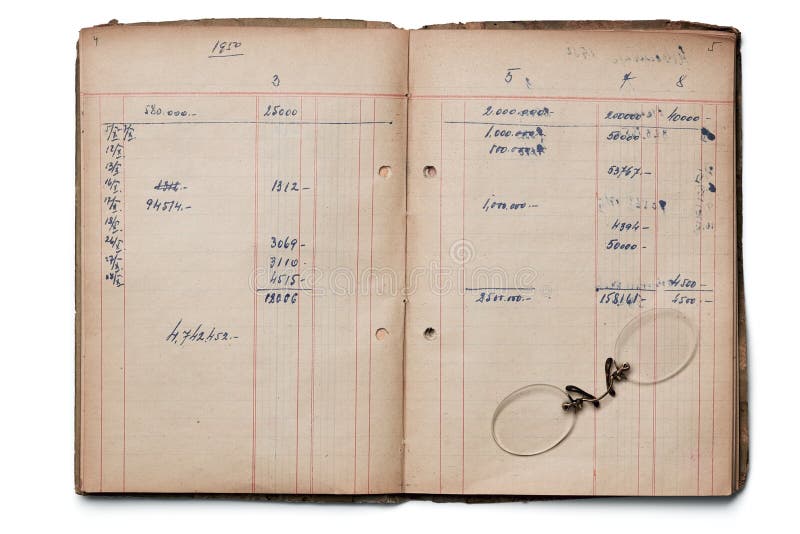 4
1950
3
580.000.- 25000
5/5 7/5
12/5
13/5
16/5 1312.-
17/5 94514.-
18/5
24/5 3069.-
3110.-
4515.-
12006
4.742.452.-
5
5 7 8
2.000.000.- 200000 40000.-
1.000.000.- 50000.-
500.000.-
53767.-
1,000.000.-
4394.-
50000.-
4500.-
2500.000.- 158161.- 4500.-
dreamstime